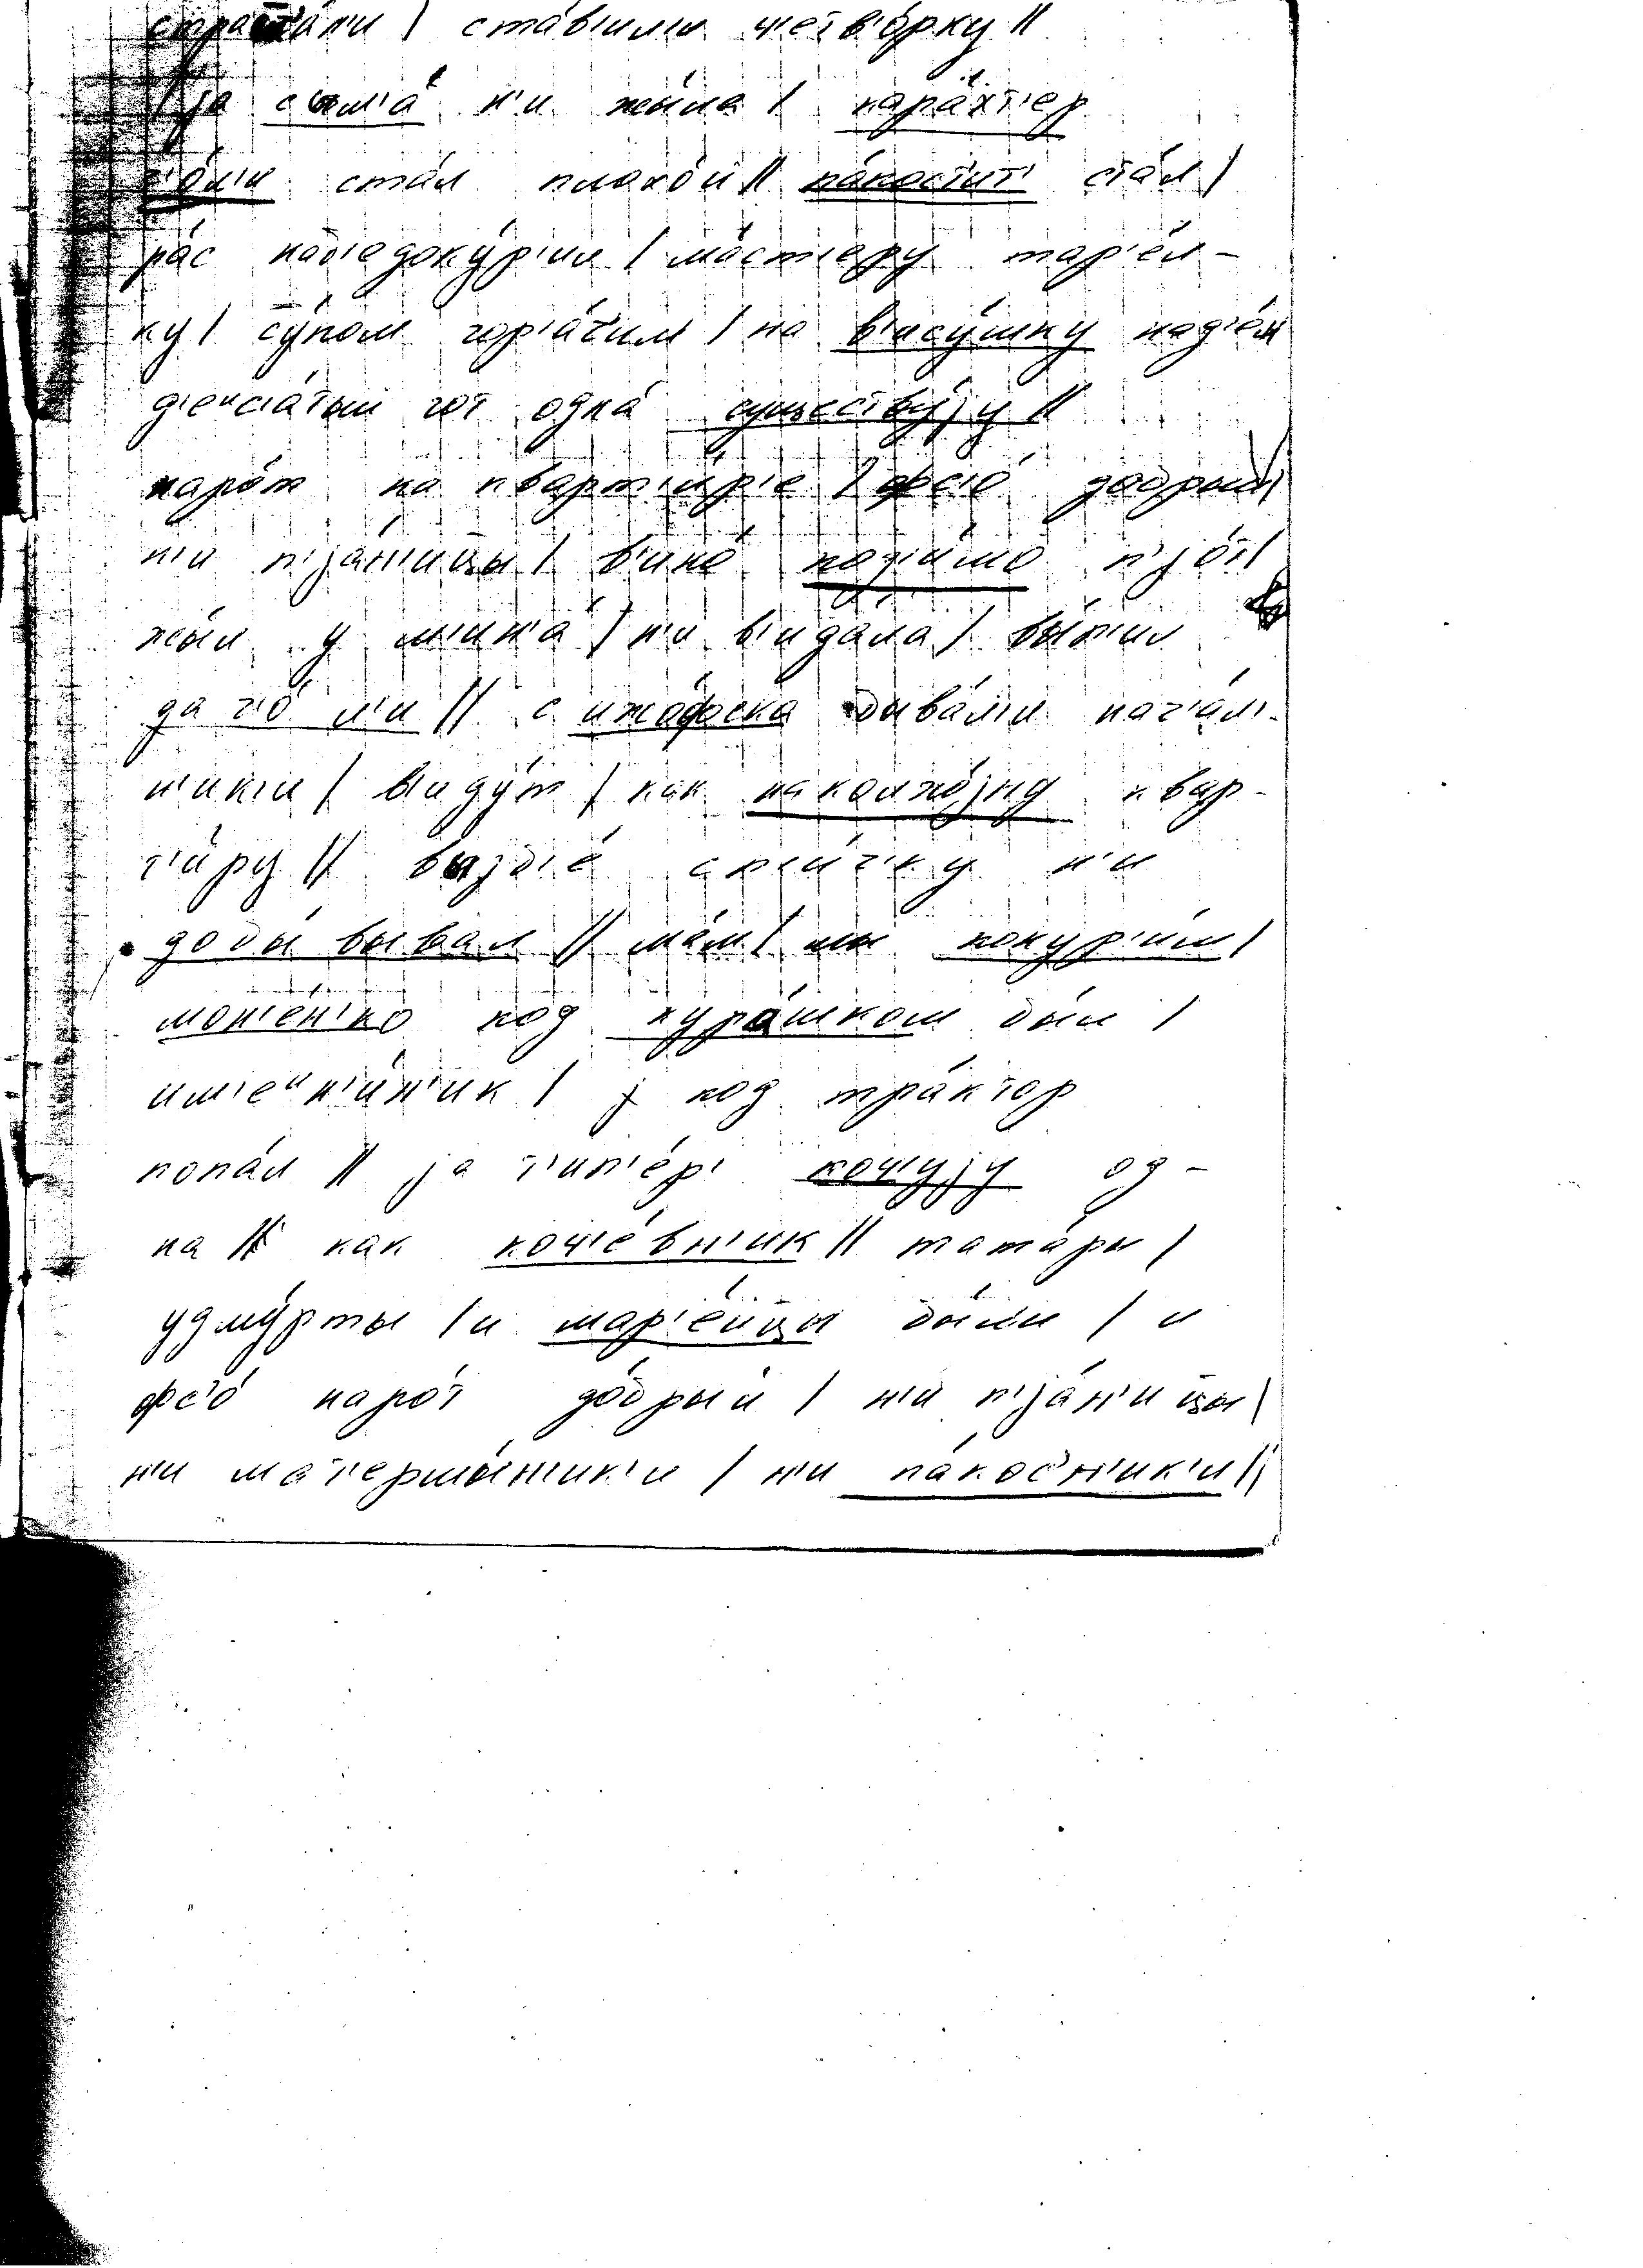 ста́в'ил'и ч'етв'о́рку ||
ја с'ем'а́ н'и жы́ла | кара́хт'ер
то́л'и ста́л плохо́й || па́кос'т'ит' ста́л |
ра́с наб'едоку́р'ил | ма́ст'еру тар'е́л-
ку | су́пом гор'а́ч'им | на в'ису́шку над'е́л
д'ев'а́тый го́т одна́ существу́ју ||
наро́т на кварт'и́р'е | фс'о́ до́брый |
н'и п'ја́н'ицы | в'ино́ п'јо́т |
жы́л у м'ин'а́ | н'и в'ида́ла | вы́п'ил
да ч'о́ л'и || с ижо́фска быва́л'и нач'а́л'-
н'ик'и | в'иду́т | как на колхо́јну квар-
т'и́ру || в'изд'е́ сп'и́ч'ку н'и
добы́вывал || ма́м | мы покур'и́м |
мол'е́н'ко под курашком бы́л |
им'еᶦн'и́н'ик | ј под тра́ктор
попа́л || ја т'ип'е́р' коч'у́ју од-
на || как коч'е́вн'ик || тата́ры |
удму́рты | и мар'е́йцы бы́л'и | и
фс'о́ наро́т до́брый | н'и п'ја́н'ицы |
н'и мат'ершы́н'ик'и | н'и па́кос'н'ик'и ||